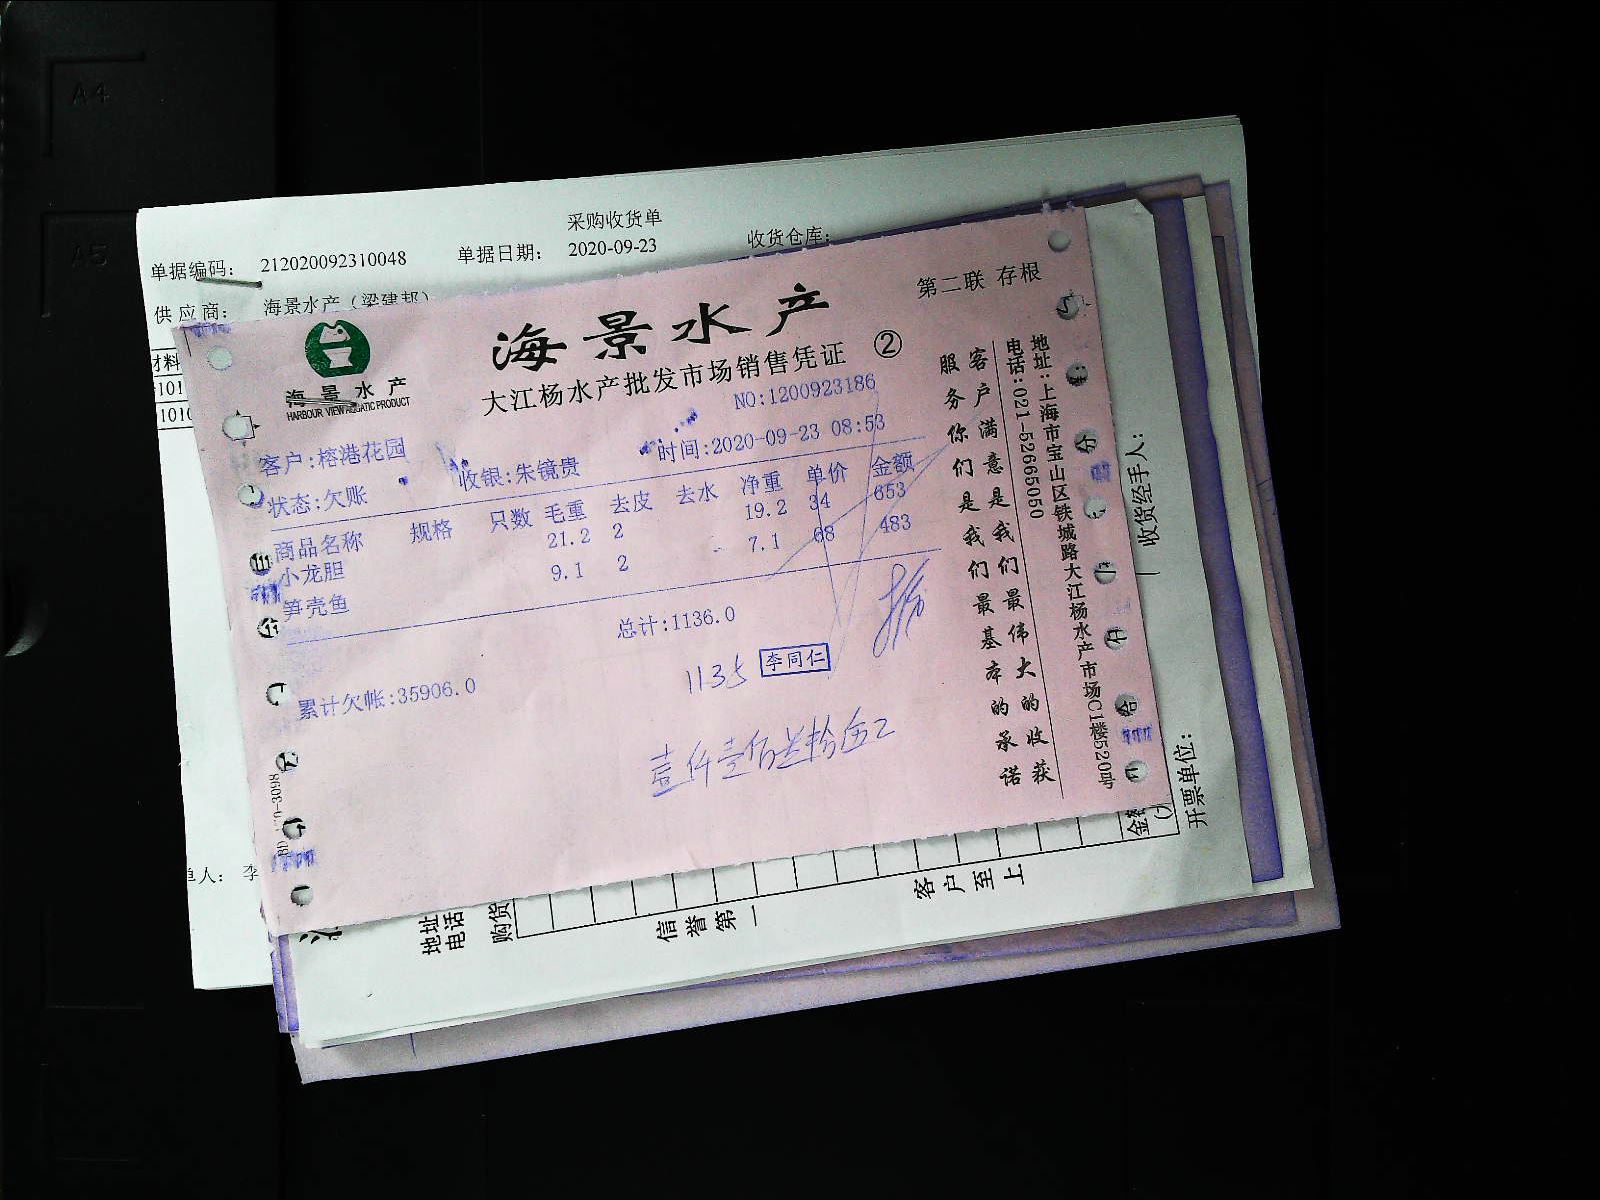 A4
A5
采购收货单
单据编码: 212020092310048 单据日期: 2020-09-23 收货仓库:
供应商: 海景水产(梁建邦)
材料
101
1010
第二联 存根
海景水产
大江杨水产批发市场销售凭证 ②
海景水产
HARBOUR VIEW AQUATIC PRODUCT
NO:1200923186
客户:榕港花园 时间:2020-09-23 08:53
状态:欠账 收银:朱镜贵
商品名称 规格 只数 毛重 去皮 去水 净重 单价 金额
小龙胆 21.2 2 19.2 34 653
笋壳鱼 9.1 2 7.1 68 483
总计:1136.0
1135 李同仁
累计欠帐:35906.0
壹仟壹佰叁拾伍
客户满意是我们最伟大的收获
服务你们是我们最基本的承诺
地址:上海市宝山区铁城路大江杨水产市场C1楼520号
电话:021-52665050
收货经手人:
开票单位:
单人: 李
地址
电话
购货
信誉第一
客户至上
金额